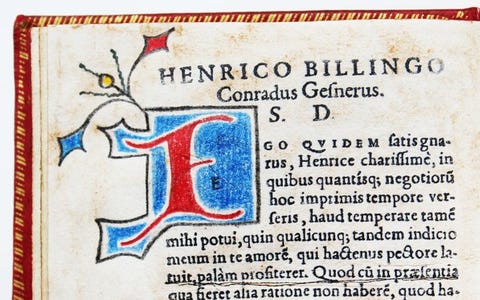 HENRICO BILLINGO
Conradus Gesnerus.
S. D.
E GO QVIDEM satis gna-
rus, Henrice charissimè, in
quibus quantisq; negotiorũ
hoc imprimis tempore ver-
seris, haud temperare tamẽ
mihi potui, quin qualicunq; tandem indicio
meum in te amorẽ, qui hactenus pectore la-
tuit, palàm profiteret. Quod cũ in præsentia
qua fieret alia ratione non haberẽ, quod ha-